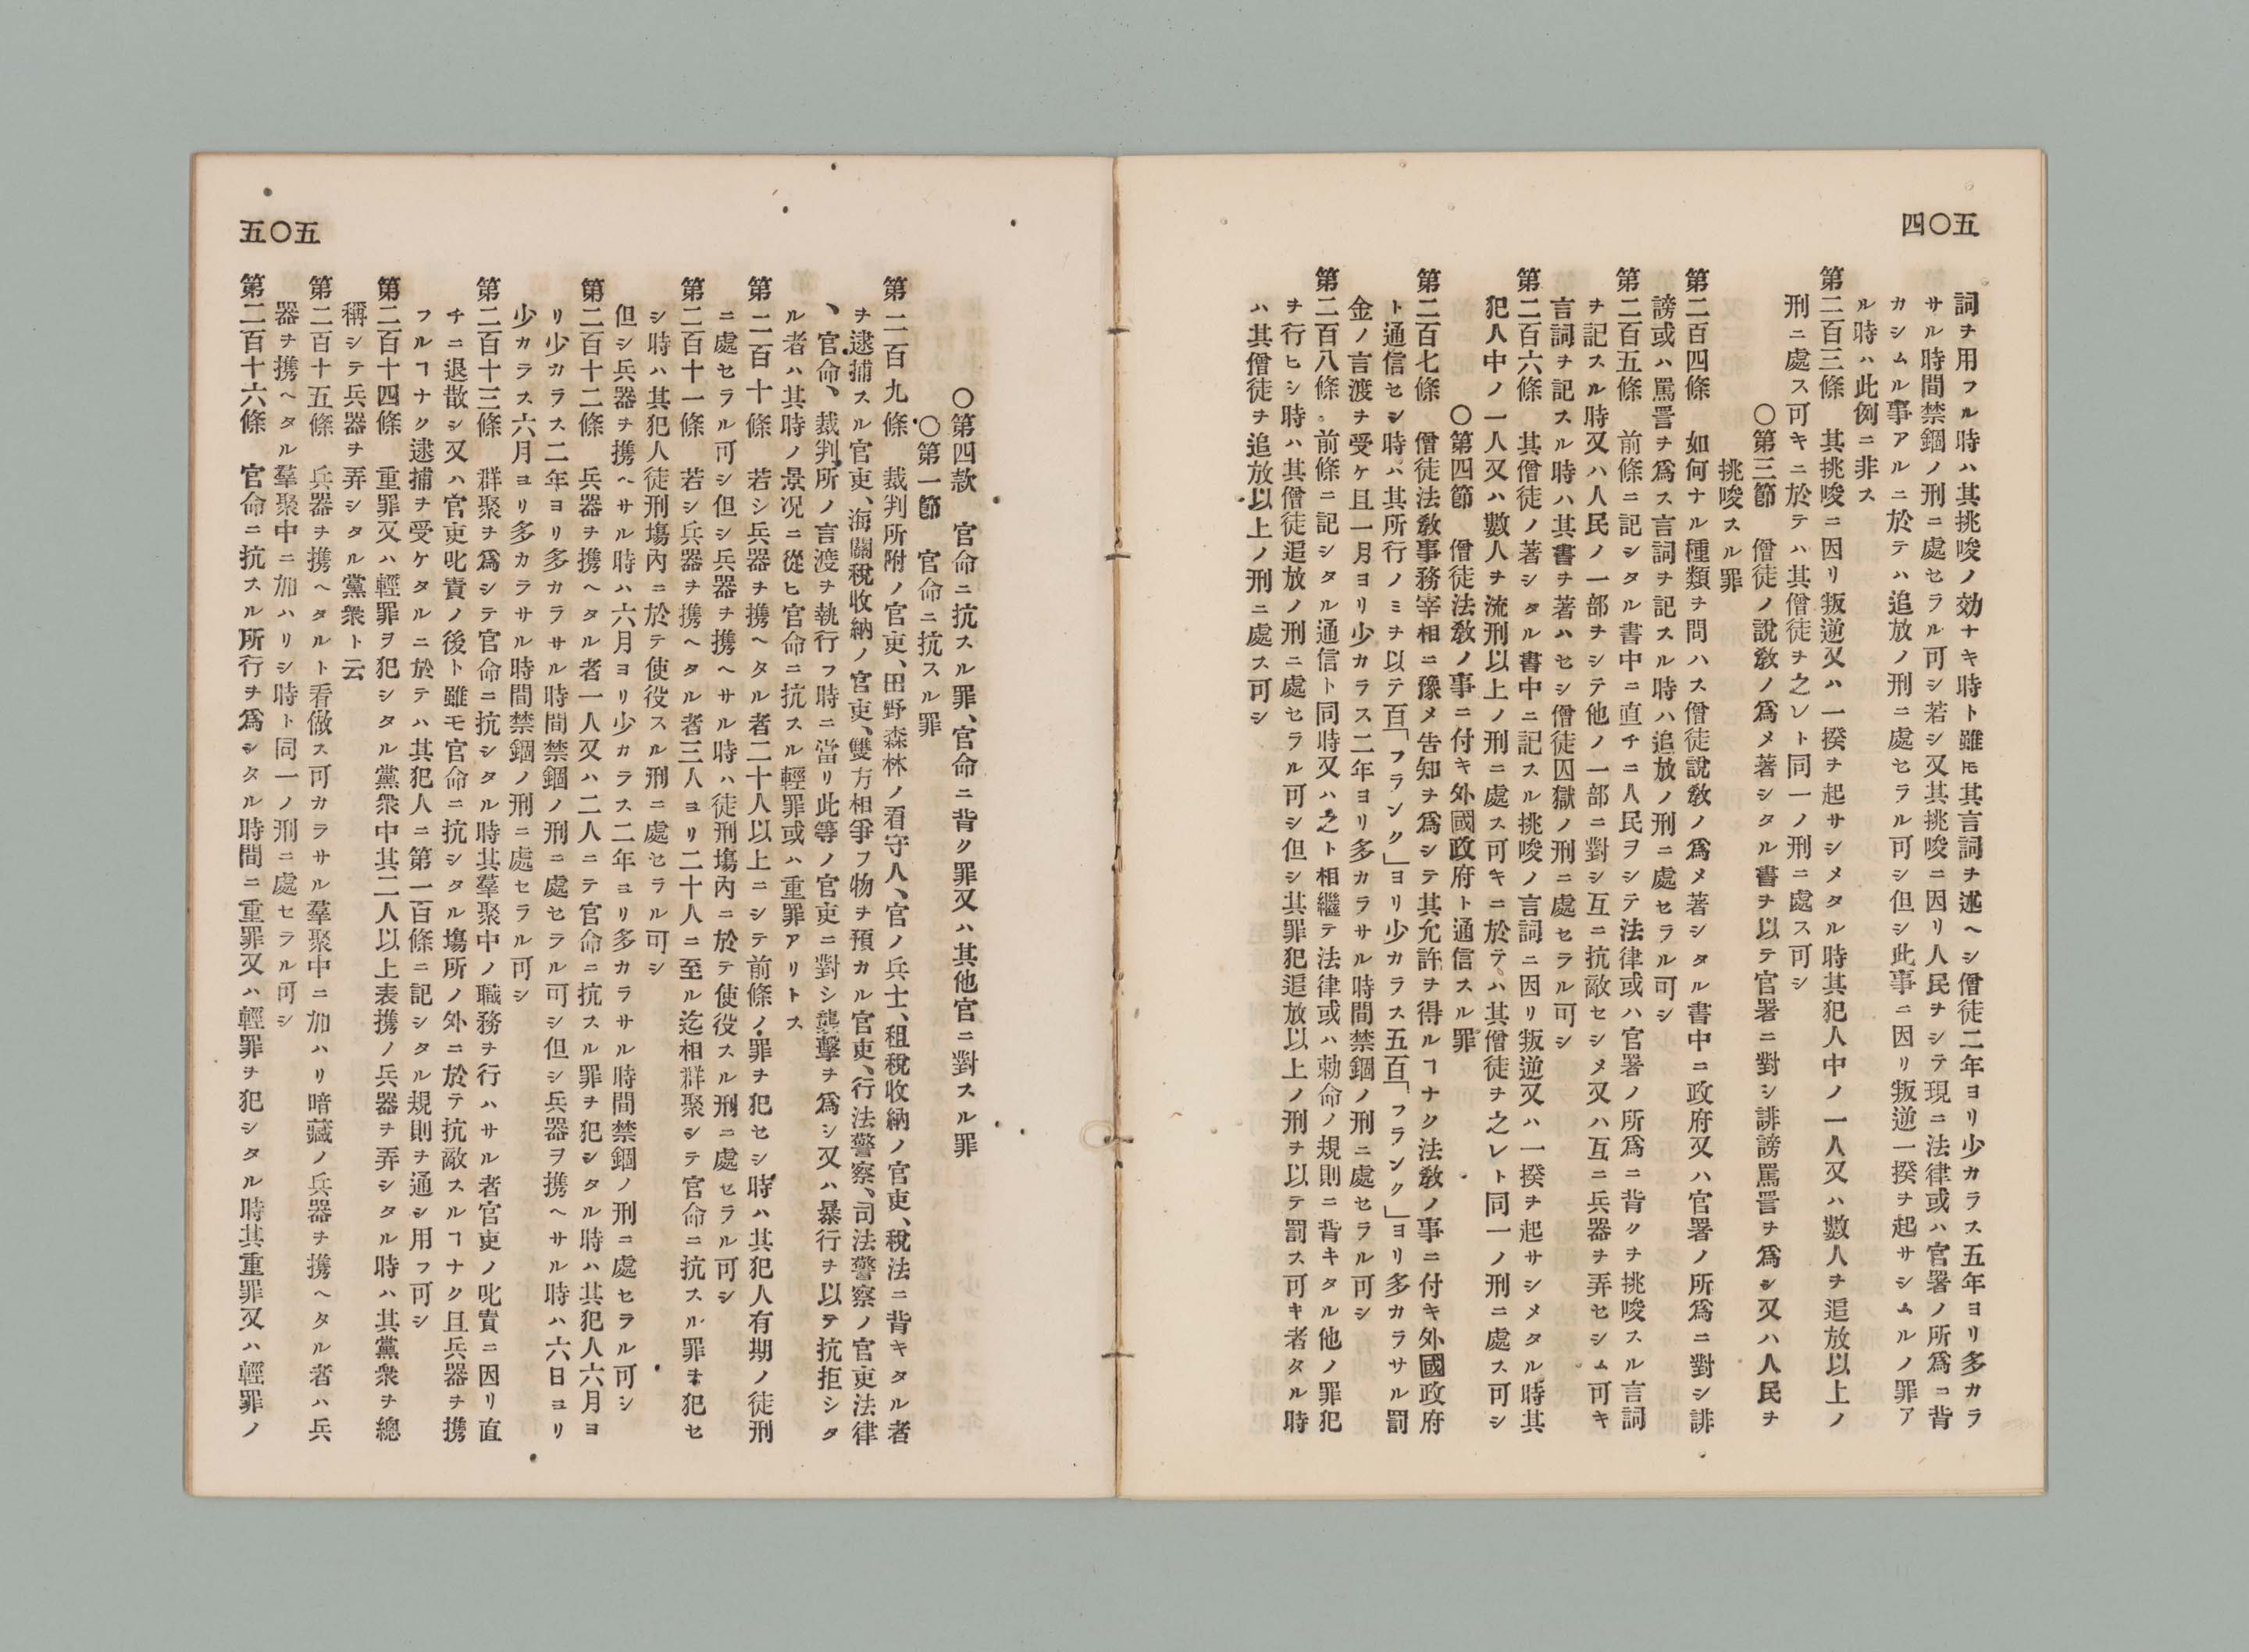 五〇四
詞ヲ用フル時ハ其挑唆ノ効ナキ時ト雖𪜈其言詞ヲ述ヘシ僧徒二年ヨリ少カラス五年ヨリ多カラ
サル時間禁錮ノ刑ニ處セラル可シ若シ又其挑唆ニ因リ人民ヲシテ現ニ法律或ハ官署ノ所爲ニ背
カシムル事アルニ於テハ追放ノ刑ニ處セラル可シ但シ此事ニ因リ叛逆一揆ヲ起サシムルノ罪ア
ル時ハ此例ニ非ス
第二百三條 其挑唆ニ因リ叛逆又ハ一揆ヲ起サシメタル時其犯人中ノ一人又ハ數人ヲ追放以上ノ
刑ニ處ス可キニ於テハ其僧徒ヲ之レト同一ノ刑ニ處ス可シ
〇第三節 僧徒ノ說敎ノ爲メ著シタル書ヲ以テ官署ニ對シ誹謗罵詈ヲ爲シ又ハ人民ヲ
挑唆スル罪
第二百四條 如何ナル種類ヲ問ハス僧徒說敎ノ爲メ著シタル書中ニ政府又ハ官署ノ所爲ニ對シ誹
謗或ハ罵詈ヲ爲ス言詞ヲ記スル時ハ追放ノ刑ニ處セラル可シ
第二百五條 前條ニ記シタル書中ニ直チニ人民ヲシテ法律或ハ官署ノ所爲ニ背クヲ挑唆スル言詞
ヲ記スル時又ハ人民ノ一部ヲシテ他ノ一部ニ對シ互ニ抗敵セシメ又ハ互ニ兵器ヲ弄セシム可キ
言詞ヲ記スル時ハ其書ヲ著ハセシ僧徒囚獄ノ刑ニ處セラル可シ
第二百六條 其僧徒ノ著シタル書中ニ記スル挑唆ノ言詞ニ因リ叛逆又ハ一揆ヲ起サシメタル時其
犯人中ノ一人又ハ數人ヲ流刑以上ノ刑ニ處ス可キニ於テハ其僧徒ヲ之レト同一ノ刑ニ處ス可シ
〇第四節 僧徒法敎ノ事ニ付キ外國政府ト通信スル罪
第二百七條 僧徒法敎事務宰相ニ豫メ告知ヲ爲シテ其允許ヲ得ルヿナク法敎ノ事ニ付キ外國政府
ト通信セシ時ハ其所行ノミヲ以テ百「フランク」ヨリ少カラス五百「フランク」ヨリ多カラサル罰
金ノ言渡ヲ受ケ且一月ヨリ少カラス二年ヨリ多カラサル時間禁錮ノ刑ニ處セラル可シ
第二百八條 前條ニ記シタル通信ト同時又ハ之ト相繼テ法律或ハ勅命ノ規則ニ背キタル他ノ罪犯
ヲ行ヒシ時ハ其僧徒追放ノ刑ニ處セラル可シ但シ其罪犯追放以上ノ刑ヲ以テ罰ス可キ者タル時
ハ其僧徒ヲ追放以上ノ刑ニ處ス可シ
五〇五
〇第四款 官命ニ抗スル罪、官命ニ背ク罪又ハ其他官ニ對スル罪
〇第一節 官命ニ抗スル罪
第二百九條 裁判所附ノ官吏、田野森林ノ看守人、官ノ兵士、租稅收納ノ官吏、稅法ニ背キタル者
ヲ逮捕スル官吏、海關稅收納ノ官吏、雙方相爭フ物ヲ預カル官吏、行法警察、司法警察ノ官吏法律
、官命、裁判所ノ言渡ヲ執行フ時ニ當リ此等ノ官吏ニ對シ襲擊ヲ爲シ又ハ暴行ヲ以テ抗拒シタ
ル者ハ其時ノ景况ニ從ヒ官命ニ抗スル輕罪或ハ重罪アリトス
第二百十條 若シ兵器ヲ携ヘタル者二十人以上ニシテ前條ノ罪ヲ犯セシ時ハ其犯人有期ノ徒刑
ニ處セラル可シ但シ兵器ヲ携ヘサル時ハ徒刑塲內ニ於テ使役スル刑ニ處セラル可シ
第二百十一條 若シ兵器ヲ携ヘタル者三人ヨリ二十人ニ至ル迄相群聚シテ官命ニ抗スル罪ヲ犯セ
シ時ハ其犯人徒刑塲內ニ於テ使役スル刑ニ處セラル可シ
但シ兵器ヲ携ヘサル時ハ六月ヨリ少カラス二年ヨリ多カラサル時間禁錮ノ刑ニ處セラル可シ
第二百十二條 兵器ヲ携ヘタル者一人又ハ二人ニテ官命ニ抗スル罪ヲ犯シタル時ハ其犯人六月ヨ
リ少カラス二年ヨリ多カラサル時間禁錮ノ刑ニ處セラル可シ但シ兵器ヲ携ヘサル時ハ六日ヨリ
少カラス六月ヨリ多カラサル時間禁錮ノ刑ニ處セラル可シ
第二百十三條 群聚ヲ爲シテ官命ニ抗シタル時其羣聚中ノ職務ヲ行ハサル者官吏ノ叱責ニ因リ直
チニ退散シ又ハ官吏叱責ノ後ト雖モ官命ニ抗シタル塲所ノ外ニ於テ抗敵スルヿナク且兵器ヲ携
フルヿナク逮捕ヲ受ケタルニ於テハ其犯人ニ第一百條ニ記シタル規則ヲ通シ用フ可シ
第二百十四條 重罪又ハ輕罪ヲ犯シタル黨衆中其二人以上表携ノ兵器ヲ弄シタル時ハ其黨衆ヲ總
稱シテ兵器ヲ弄シタル黨衆ト云
第二百十五條 兵器ヲ携ヘタルト看做ス可カラサル羣聚中ニ加ハリ暗藏ノ兵器ヲ携ヘタル者ハ兵
器ヲ携ヘタル羣聚中ニ加ハリシ時ト同一ノ刑ニ處セラル可シ
第二百十六條 官命ニ抗スル所行ヲ爲シタル時間ニ重罪又ハ輕罪ヲ犯シタル時其重罪又ハ輕罪ノ